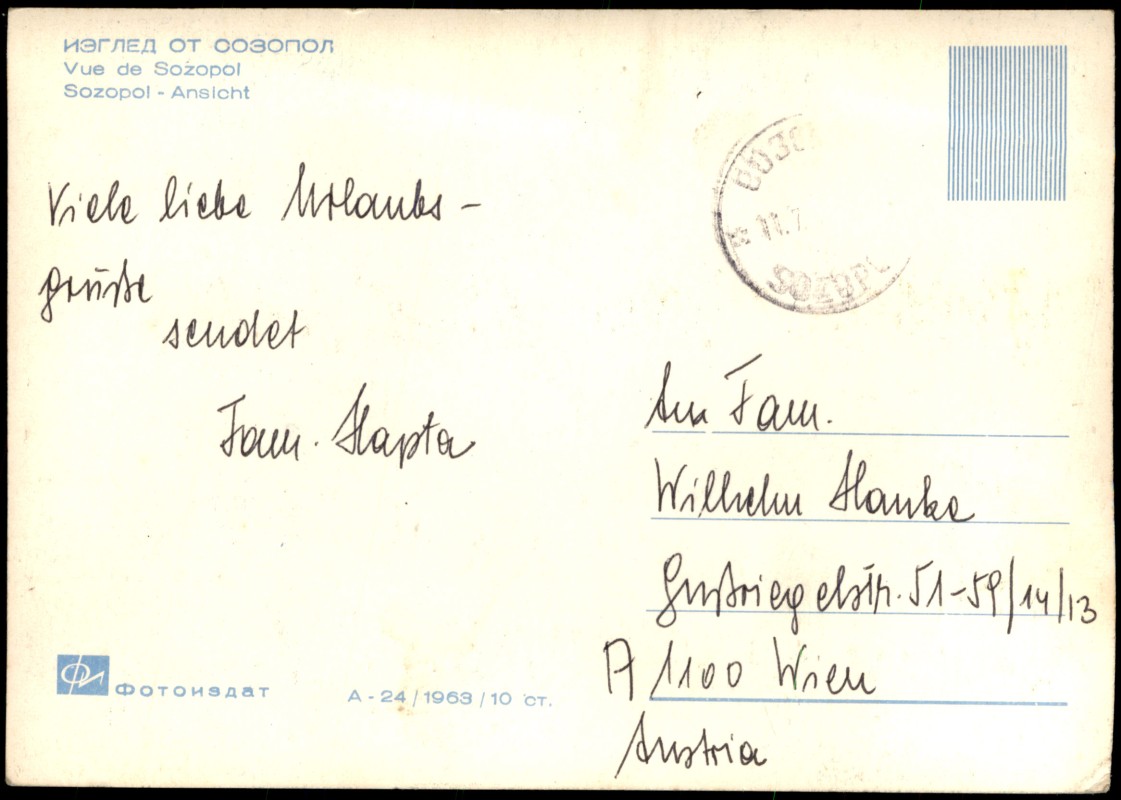 ИЗГЛЕД ОТ СОЗОПОЛ
Vue de Sozopol
Sozopol - Ansicht
Viele liebe Urlaubs-
grüße
sendet
Fam. Hapta
СОЗО
11.7
SOZOPO
An Fam.
Wilhelm Hanke
Gußriegelstr. 51-59/14/13
A 1100 Wien
Austria
Фотоиздат
А - 24 / 1963 / 10 ст.